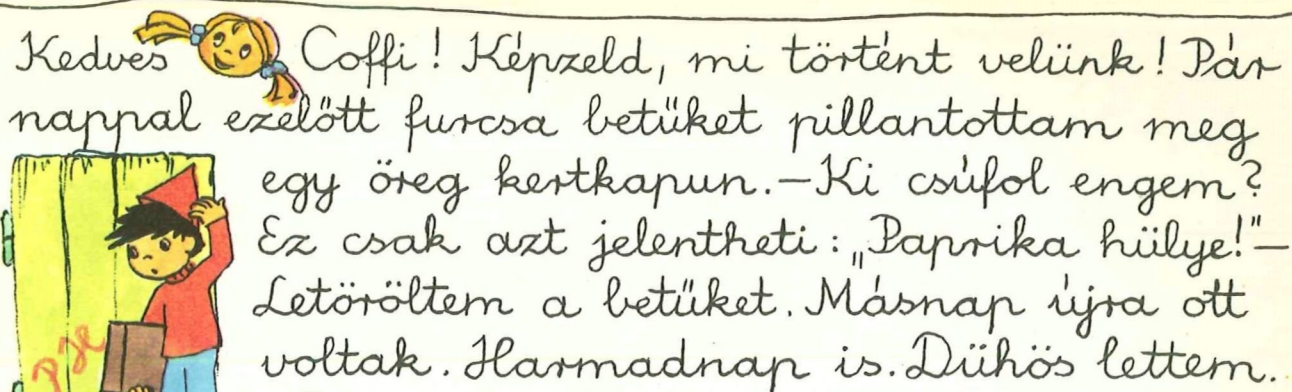 Kedves Coffi! Képzeld, mi történt velünk! Pár
nappal ezelőtt furcsa betűket pillantottam meg
egy öreg kertkapun.–Ki csúfol engem?
Ez csak azt jelentheti: „Paprika hülye!"–
Letöröltem a betűket. Másnap újra ott
voltak. Harmadnap is. Dühös lettem.